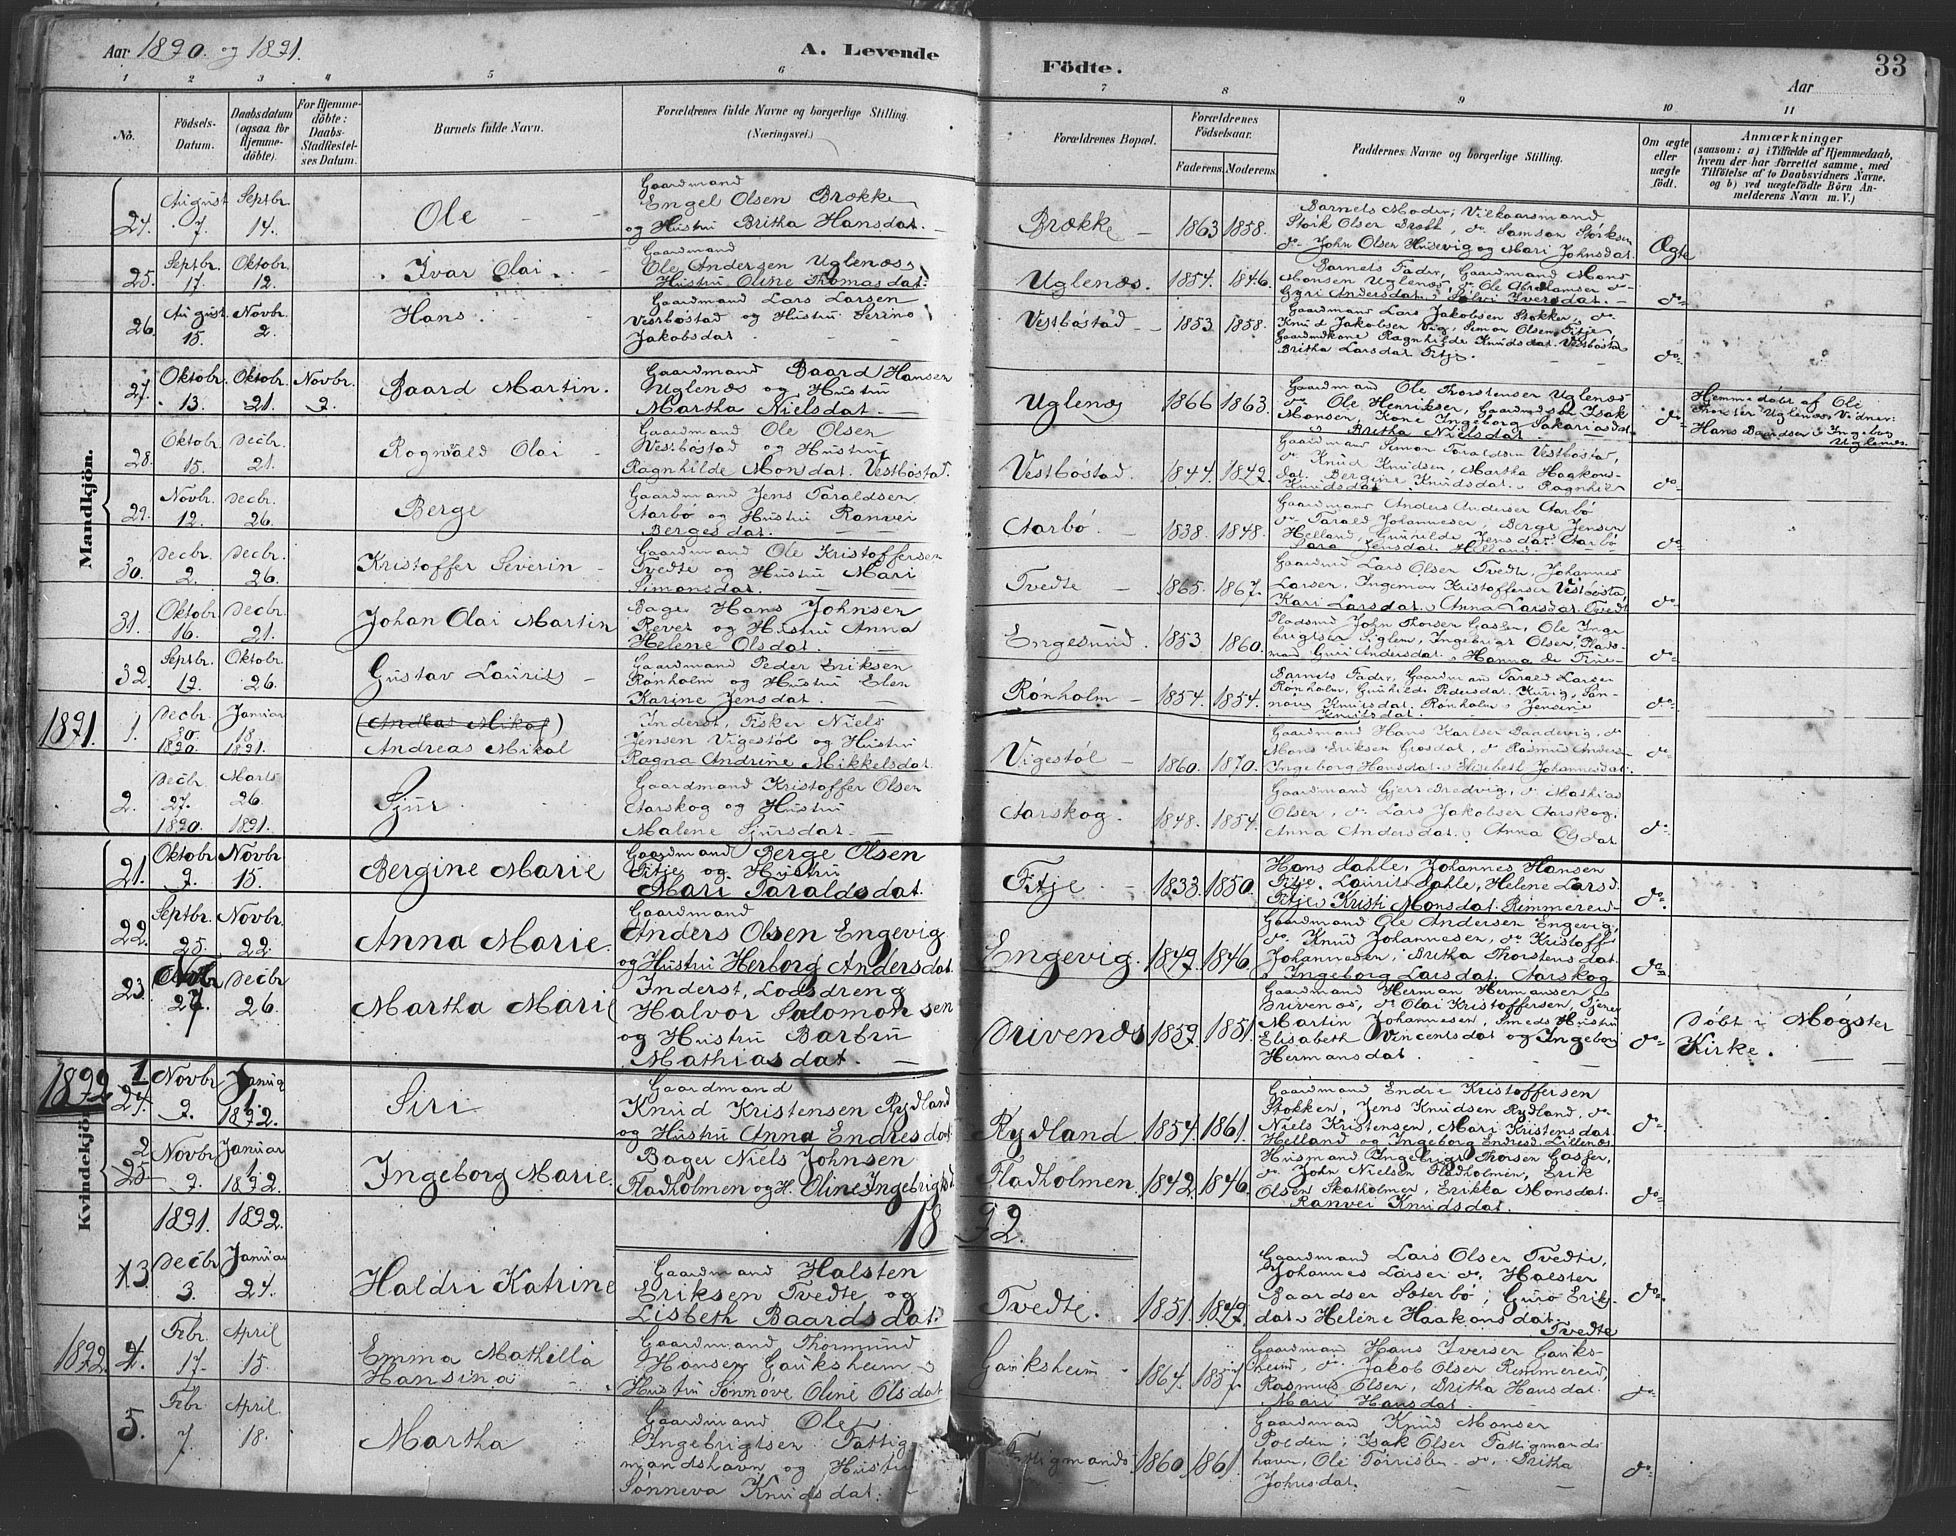 Aar 1890. og 1891. A. Levende Födte. Aar 33
1 2 3 4 5 6 7 8 9 10 11
No. Födsels-Datum. Daabsdatum (ogsaa for Hjemmedöbte). For Hjemmedöbte: Daabs-Stadfæstelses Datum. Barnets fulde Navn. Forældrenes fulde Navne og borgerlige Stilling. (Næringsvei.) Forældrenes Bopæl. Forældrenes Födselsaar. Faderens. Moderens. Faddernes Navne og borgerlige Stilling. Om ægte eller uægte födt. Anmærkninger (saasom: a) i Tilfælde af Hjemmedaab, hvem der har forrettet samme, med Tilföielse af to Daabsvidners Navne, og b) ved uægtefödte Börn Anmelderens Navn m. V.)
Mandkjön.
24. August 7 Septbr. 14. Ole
Gaardmand
Engel Olsen Brække
og Hustru Britha Hansdat.
Brække 1863 1858.
Barnets Moder, Vilkaarsmand
Störk Olsen do Samson Störksen
do John Olsen Husevig og Mari Johnsdat.
Ægte
25. Septbr. 17. Oktobr. 12. Ivar Olai
Gaardmand
Ole Andersen Uglenæs
Hustru Oline Thomasdat.
Uglenæs. 1854. 1846.
Barnets Fader, Gaardmand Mons
Monsen Uglenæs, do Ole Abrahamsen do
Gyri Andersdat. Sølvi Iversdat.
do
26. August 15. Novbr. 2. Hans
Gaardmand Lars Larsen
Vestbøstad og Hustru Serine
Jakobsdat.
Vestbøstad 1853. 1858.
Gaardmand Lars Jakobsen Stokke, do
Knud Jakobsen Vig, Simon Olsen Fitje
Gaardmdkone Ragnhilde Knudsdat. Vestbøstad
Britha Larsdat Fitje.
do
27. Oktobr. 13. Oktobr. 21. Novbr. 9. Baard Martin.
Gaardmand Baard Hansen
Uglenæs og Hustru
Martha Nielsdat.
Uglenæs 1866 1863.
Gaardmand Ole Thorstensen Uglenæs
do Ole Henriksen, Gaardmdsøn Isak
Monsen, Kone Ingeborg Sakariasdat.
Britha Nielsdat
do
Hjemmedøbt af Ole
Uglenæs. Vidner:
Hans Baardsen Ingeborg
Uglenæs.
28. Oktobr. 15. Decbr. 21. Rognvald Olai
Gaardmand Ole Olsen
Vestbøstad og Hustru
Ragnhilde Monsdat. Vestbøstad.
Vestbøstad. 1844. 1849.
Gaardman Simon Taraldsen Vestbøstad,
do Knud Knudsen, Martha Haakons-
dat. Bergine Knudsdat. Ragnhild
Knudsdat
do
29. Novbr. 12. Decbr. 26. Berge
Gaardmand Jens Taraldsen
Aarbø og Hustru Ranvei
Bergesdat.
Aarbø 1838. 1848.
Gaardmand Anders Andersen Aarbø
do Tarald Johannesen, Berge Jensen
Helland, Gunilde Jensdat. Aarbø
Sara Jensdat. Helland
do
30. Decbr. 2. Decbr. 26. Kristoffer Severin
Gaardmand Ole Kristoffersen
Tvedte og Hustru Mari
Simonsdat.
Tvedte 1865. 1867.
Gaardmd Lars Olsen Tvedt, Johannes
Larsen, Ingemar Kristoffersen Vestbøstad
Kari Larsdat. Anna Larsdat. Tvedt
do
31. Oktobr. 16. Decbr. 21. Johan Olai Martin
Bager Hans Johnsen
Røver og Hustru Anna
Helene Olsdat.
Engesund. 1853 1860.
Pladsmd John Thorsen Gasser, Ole Inge-
brigtsen Siglen, Ingebrigt Olsen, Plads-
mand, Guri Andersdat. Hanna de
do
32. Septbr. 19. Oktobr. 26. Gustav Laurits
Gaardmand Peder Eriksen
Rønholm og Hustru Elen
Karine Jensdat.
Rønholm 1854. 1854.
Barnets Fader, Gaardman Tarald Larsen
Rønholm, Gunhilde Pedersdat. Kuvig, Sun-
Knutsdat. Rønholm Jensine
Knutsdat.
do
1891. 1. Decbr. 30. 1890. Januar 18. 1891. (Andreas Mikal) Andreas Mikal
Inderst, Fisker Niels
Jensen Vigestøl og Hustru
Ragna Andrine Mikkelsdat.
Vigestøl 1860. 1870.
Gaardmand Hans Karlsen Sandevig, do
Mons Eriksen Grosdal, do Rasmus Anders-
Ingeborg Hansdat. Elisebeth Johannesdat.
do
2. Decbr. 27. 1890. Marts 26. 1891. Sjur
Gaardmand Kristoffer Olsen
Aarskog og Hustru
Malene Sjursdat.
Aarskog. 1848. 1854.
Gaardmand Gjert Bredvig, do Mathias
Olsen, do Lars Jakobsen Aarskog.
Anna Andersdat. Anna Olsdat
do
Kvindekjön.
21. Oktobr 9. Novbr 15. Bergine Marie
Gaardmand Berge Olsen
Fitje og Hustru
Mari Taraldsdat.
Fitje 1833. 1850.
Hans Dahle, Johannes Hansen
Fitje, Laurits Dahle, Helene Larsd.
Fitje, Kristi Monsdat. Rimmereid
do.
22. Septbr. 25. Novbr. 22. Anna Marie.
Gaardmand
Anders Olsen Engevig
og Hustru Herborg Andersdat.
Engevig. 1849. 1846.
Gaardmand Ole Andersen Engevig,
do Knud Johannesen, do Kristoff
Johannesen, Britha Thorstensdat
Ingeborg Larsdat, Aarskog
do
23. Novbr 27 Decbr 26. Martha Marie
Inderst, Lodsdreng
Halvor Salomonsen
og Hustru Barbru
Mathiasdat.
Drivenæs 1859. 1851.
Gaardmand Herman Hermansen
Drivenæs, do Olai Kristoffersen, Tjener
Martin Johannesen, Smeds Hustru
Elisabeth Vincentsdat og Ingeborg
Hermansdat.
do
Døbt i Møgster
Kirke.
1892 1 24. Novbr 9. Januar 1. 1892. Siri
Gaardmand
Knud Kristensen Rydland
og Hustru Anna Endresdat
Rydland 1854. 1861.
Gaardmand Endre Kristoffersen
Stokken, Jens Knudsen Rydland, do
Niels Kristensen, Mari Kristensdat.
Helland og Ingeborg Endresd. Lillenæs
do
2 25. Novbr 9. 1891. Januar 1. 1892. 1892. Ingeborg Marie.
Bager Niels Johnsen
Fladholmen og H. Oline Ingebrigtsd.
Fladholmen. 1842. 1846.
Husmand Ingebrigt Thorsen Gasser,
do John Nielsen Fladholmen, Erik
Olsen Skatholmen, Erikka Monsdat.
Ranvei Knudsdat.
do
1892.
3 Decbr 3. Januar 24. Haldri Katrine
Gaardmand Halsten
Eriksen Tvedte og
Lisbeth Baardsdat.
Tvedte. 1851. 1849.
Gaardmand Lars Olsen Tvedte,
Johannes Larsen do. Halsten
Baardsen Sæterbø, Guro Eriks-
dat Helene Haakonsdat
Tvedte
do
1892. 4. Febr. 17. April 15. Emma Mathilla Hansina
Gaardmand Thormund
Hansen Gauksheim
Hustru Sønnøve Oline Olsdat
Gauksheim 1864. 1857.
Gaardmand Hans Iversen Gauks-
heim, do Jakob Olsen Rimmereid,
Rasmus Olsen, Britha Hansdat.
Mari Hansdat.
do
5. Febr 7. April 18. Martha
Gaardmand Ole
Ingebrigtsen Fattig-
mandshavn og Hustru
Sønneva Knudsdat.
Fattigmands- 1860. 1861.
Gaardmand Knud Monsen
Polden, Isak Olsen Fattigmands-
havn, Ole Tørrisen do. Britha
Johnsdat.
do